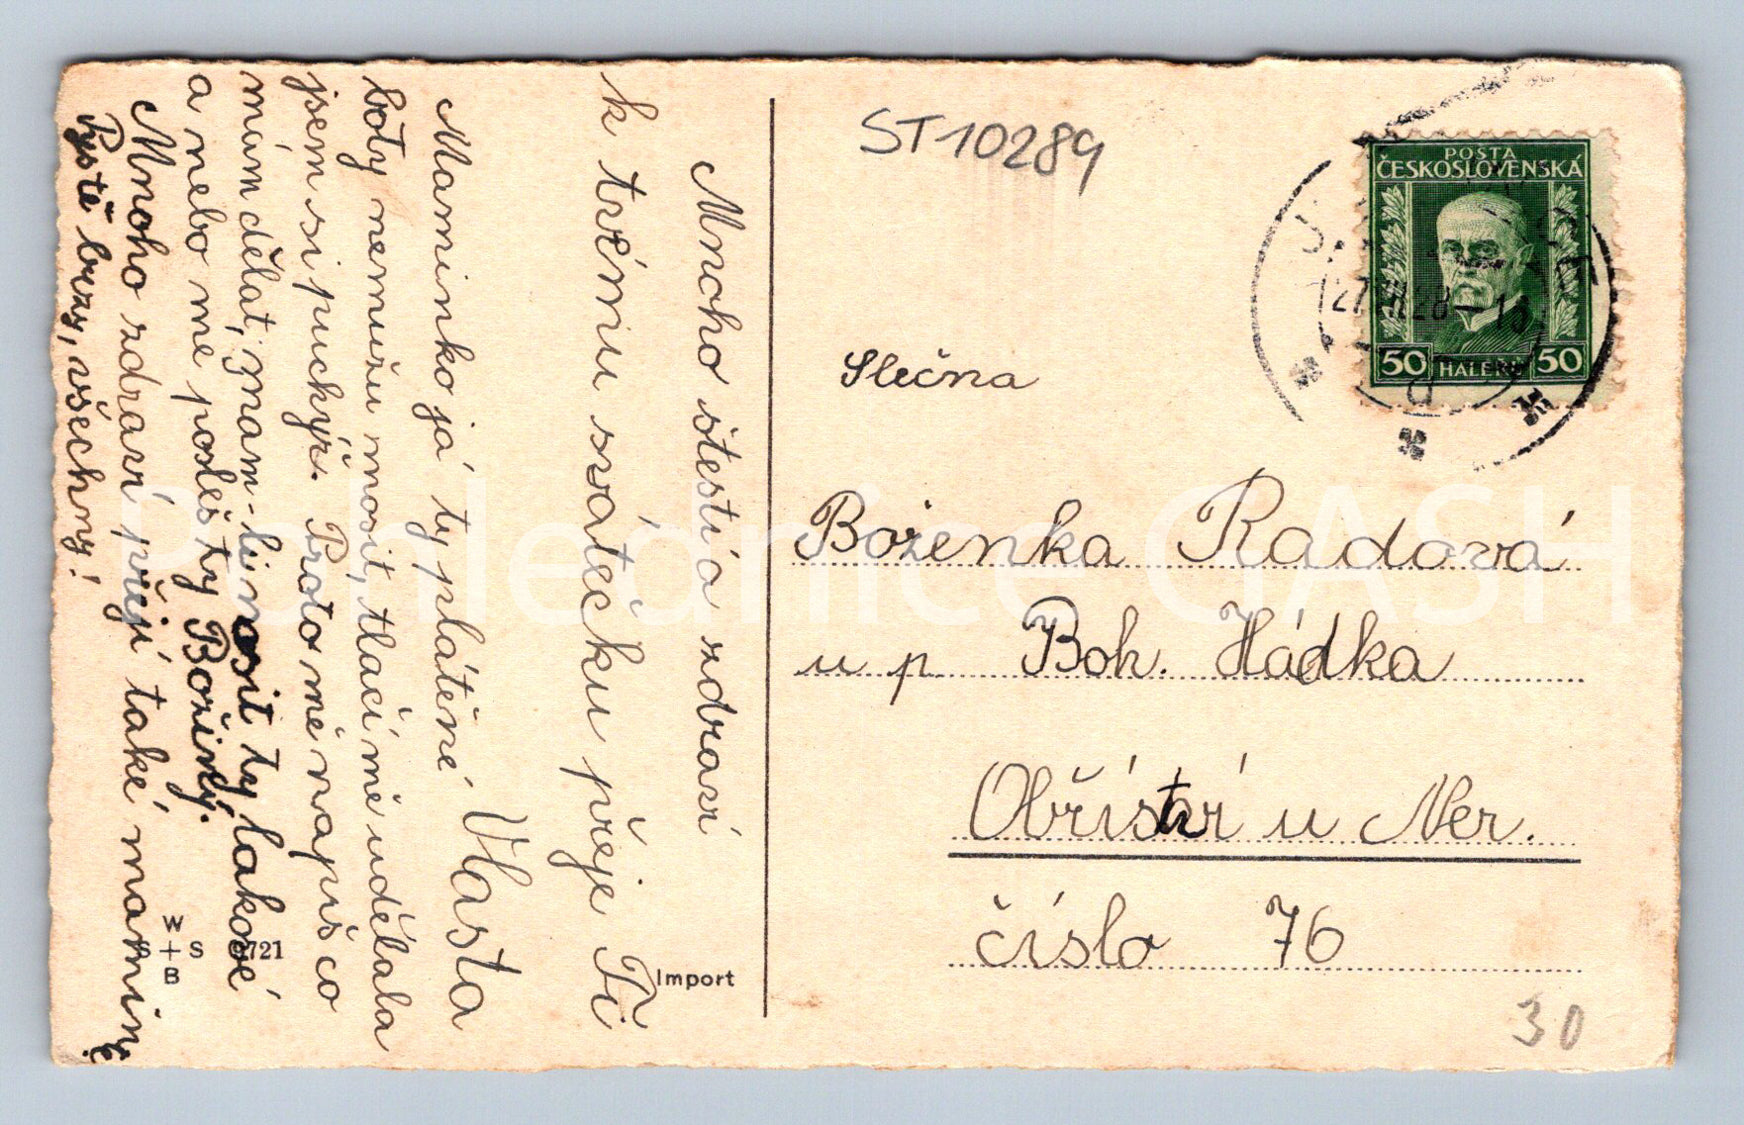 Mnoho štestí a zdraví
k tvému svátečku přeje Ti
Vlasta
Maminko já ty plátěné
boty nemužu nosit, tlačí mě udělala
jsem si puchýř. Proto mě napiš co
mám dělat, mám-li nosit ty lakové
a nebo mě pošleš ty Božinky.
Mnoho zdraví přeji také mamince
Pište brzy, všechny!
W
S + S 3721
B
Import
ST10289
POSTA
ČESKOSLOVENSKÁ
50 HALÉŘŮ 50
Slečna
Boženka Radová
u p. Boh. Hádka
Obříství u Mer.
číslo 76
30
Pohlednice GASH